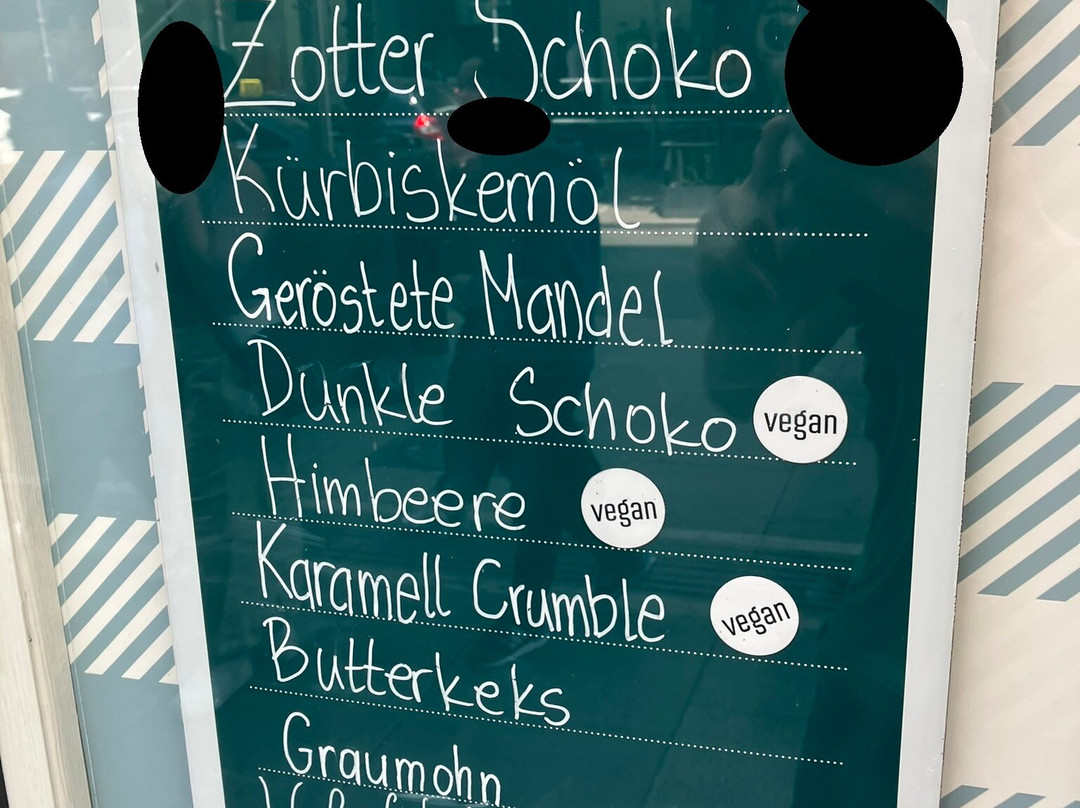 Zotter Schoko
Kürbiskernöl
Geröstete Mandel
Dunkle Schoko vegan
Himbeere vegan
Karamell Crumble vegan
Butterkeks
Graumohn